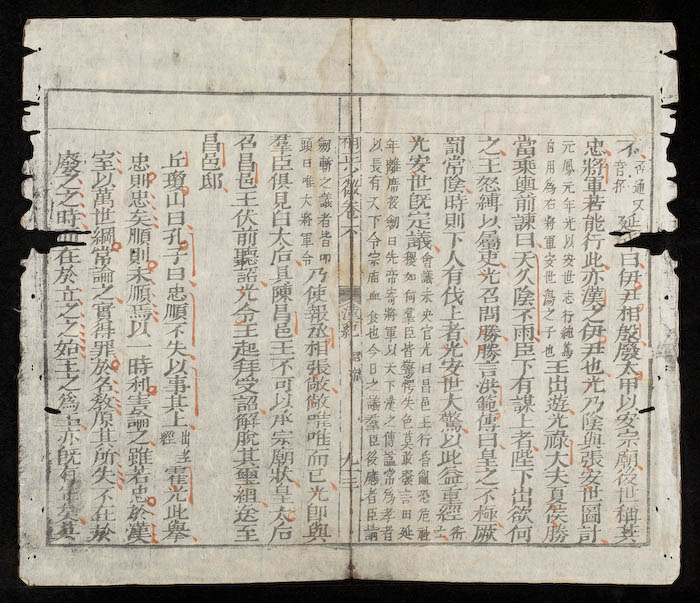 不 否通又音孚 延年曰伊尹相殷廢太甲以安宗廟後世稱其
忠將軍若能行此亦漢之伊尹也光乃陰與張安世圖計
元鳳元年光以安世志行純篤白用為右將軍安世湯之子也 王出遊光祿大夫夏侯勝
當乘輿前諫曰天久陰不雨臣下有謀上者陛下出欲何
之王怒縛以屬吏光召問勝勝言洪範傳曰皇之不極厥
罰常陰時則下人有伐上者光安世大驚以此益重經術士
光安世既定議 會議未央宮光曰昌邑王行昏亂恐危社稷如何羣臣皆驚愕失色莫敢發言田延
年離席按劍曰先帝寄將軍以天下漢之傳謚常為孝者
以長有天下令宗庙血食也今日之議羣臣後應者臣請
劍斬之議者皆叩頭曰唯大將軍令 乃使報丞相張敞敞唯唯而已光即與
羣臣俱見白太后具陳昌邑王不可以承宗廟狀皇太后
召昌邑王伏前聽詔光令王起拜受詔解脫其璽組送至
昌邑邸
丘瓊山曰孔子曰忠順不失以事其上 出孝經 霍光此舉
忠則忠矣順則未順焉以一時利害論之雖若忠於漢
室以萬世綱常論之實得罪於名教原其所失不在於
廢之之時而在於立之之始王之為 亦既有
卷 漢紀 昭帝 九三